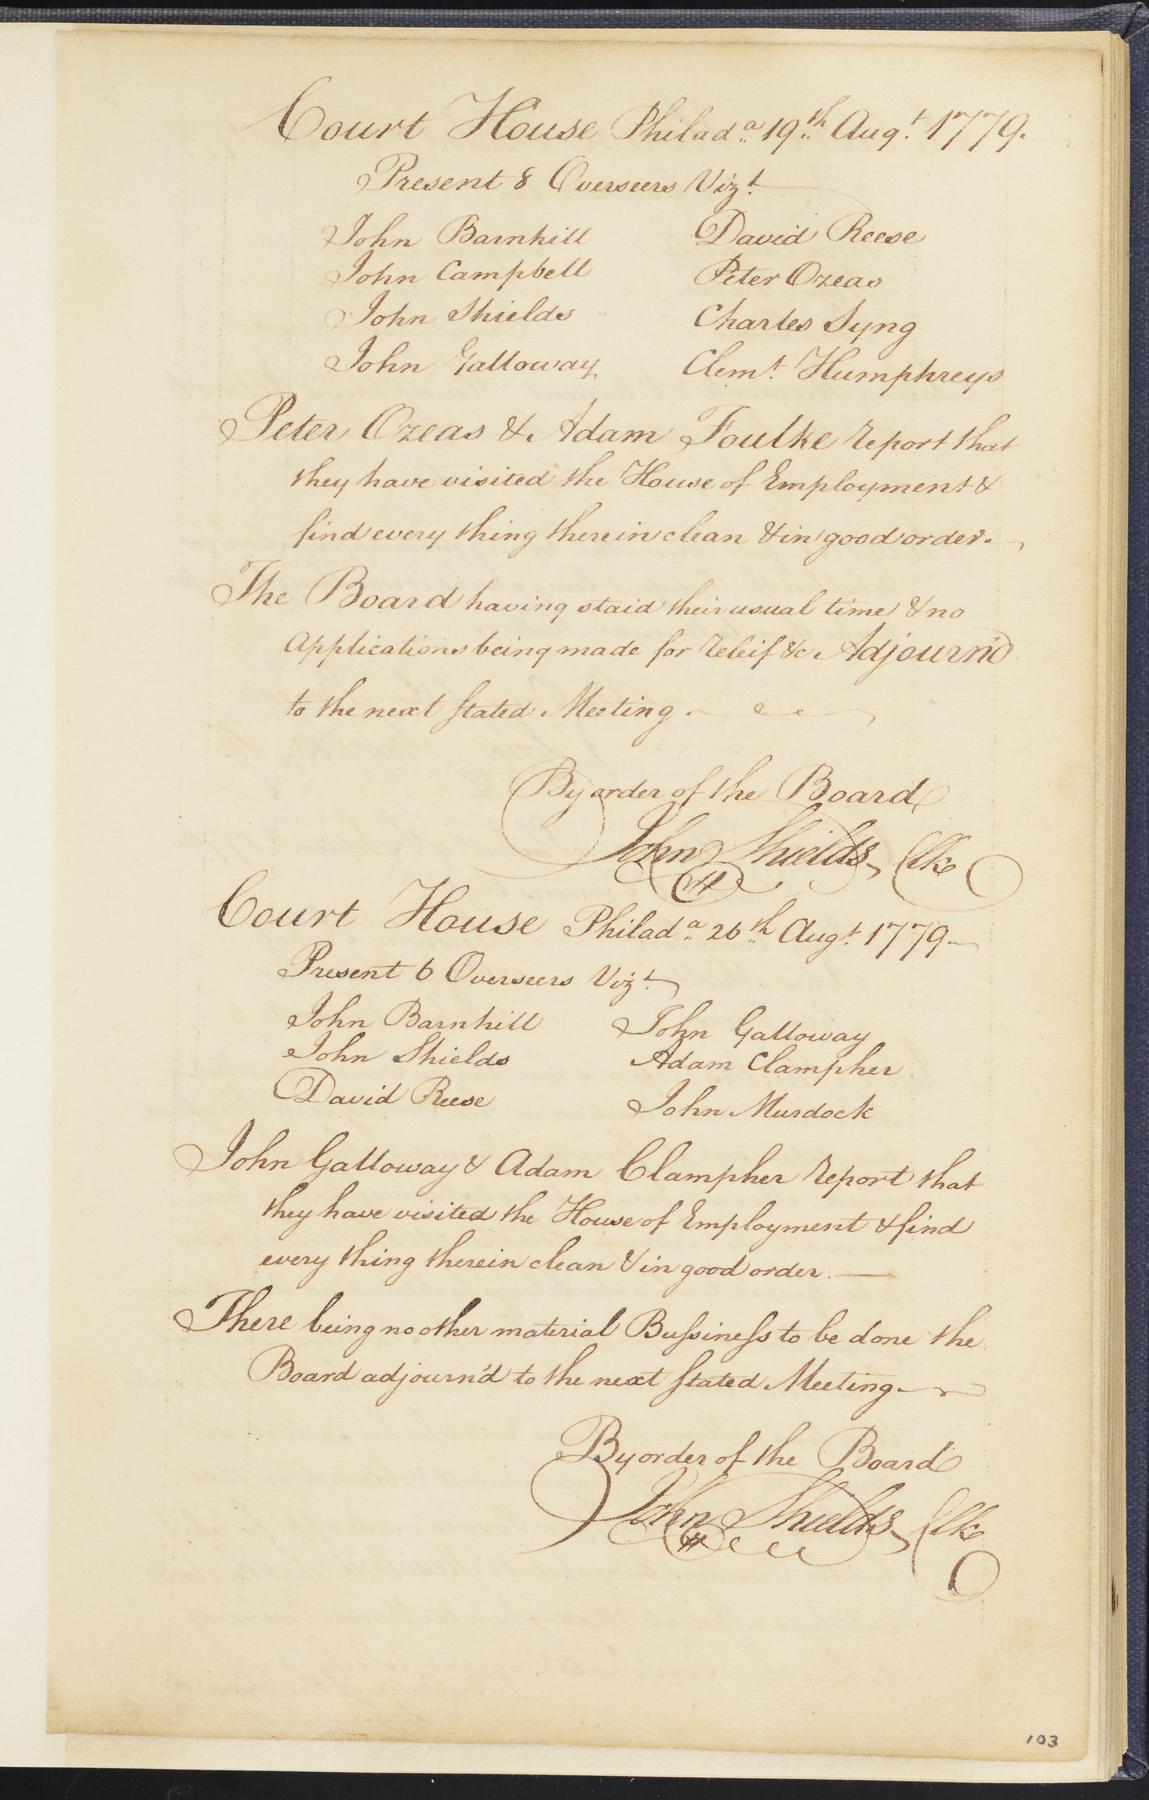 Court House Philada. 19th. Augt. 1779.
Present 8 Overseers Vizt.
John Barnhill David Reese
John Campbell Peter Ozeas
John Shields Charles Syng
John Galloway Clemt. Humphreys
Peter Ozeas & Adam Foulke report that
they have visited the House of Employment &
find every thing therein clean & in good order.
The Board having staid their usual time & no
Applications being made for releif &c Adjourn'd
to the next Stated Meeting.
By order of the Board
John Shields, Clk
Court House Philada. 26th Augt. 1779
Present 6 Overseers Vizt.
John Barnhill John Galloway
John Shields Adam Clampher
David Reese John Murdock
John Galloway & Adam Clampher report that
they have visited the House of Employment & find
every thing therein clean & in good order.
There being no other material Bussiness to be done the
Board adjourn'd to the next Stated Meeting
By order of the Board
John Shields, Clk
103